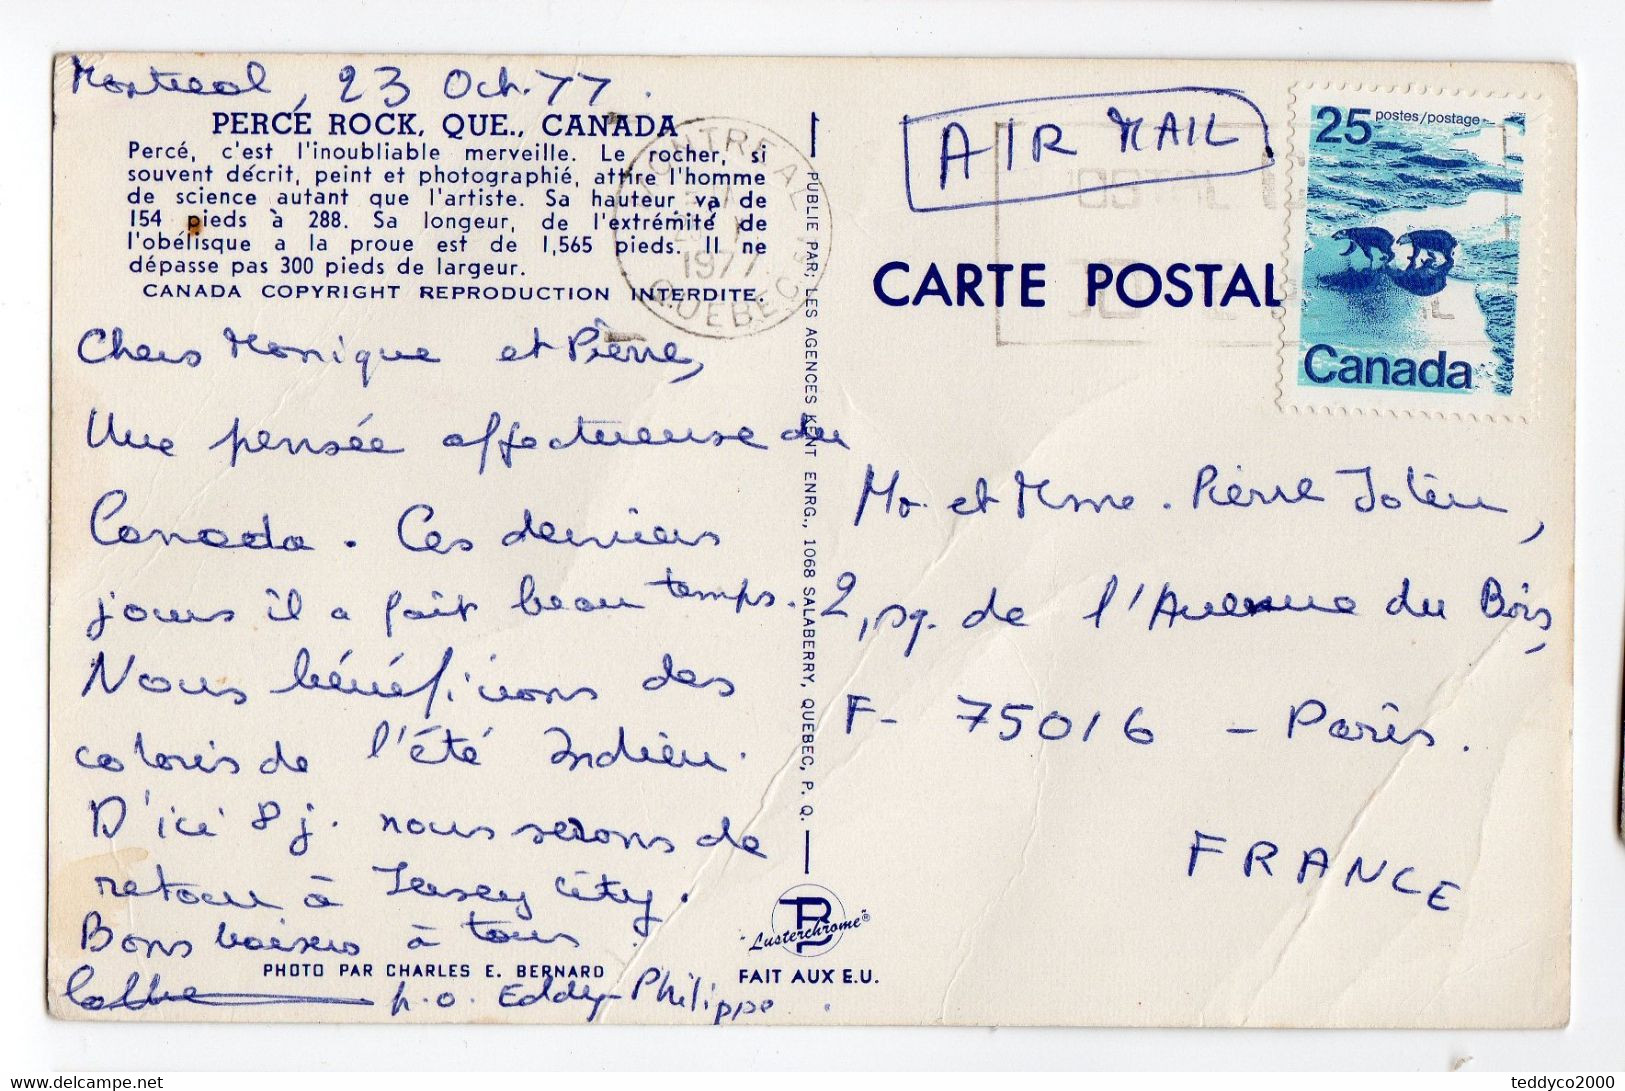 Montreal, 23 Oct. 77.
PERCÉ ROCK, QUE., CANADA
Percé, c'est l'inoubliable merveille. Le rocher, si
souvent décrit, peint et photographié, attire l'homme
de science autant que l'artiste. Sa hauteur va de
154 pieds à 288. Sa longeur, de l'extrémité de
l'obélisque a la proue est de 1,565 pieds. Il ne
dépasse pas 300 pieds de largeur.
CANADA COPYRIGHT REPRODUCTION INTERDITE.
Chers Monique et Pierre,
Une pensée affectueuse du
Canada. Ces derniers
jours il a fait beau temps.
Nous bénéficions des
coloris de l'été Indien.
D'ici 8 j. nous serons de
retour à Jersey City.
Bons baisers à tous
PHOTO PAR CHARLES E. BERNARD
p.o. Eddy-Philippe.
PUBLIE PAR; LES AGENCES KENT ENRG., 1068 SALABERRY, QUEBEC, P. Q.
"Lusterchrome"®
FAIT AUX E.U.
MONTREAL
1977
QUEBEC
AIR MAIL
CARTE POSTAL
25 postes/postage
Canada
Mr. et Mme. Pierre
2, sq. de l'Avenue du Bois,
F- 75016 - Paris.
FRANCE
teddyco2000